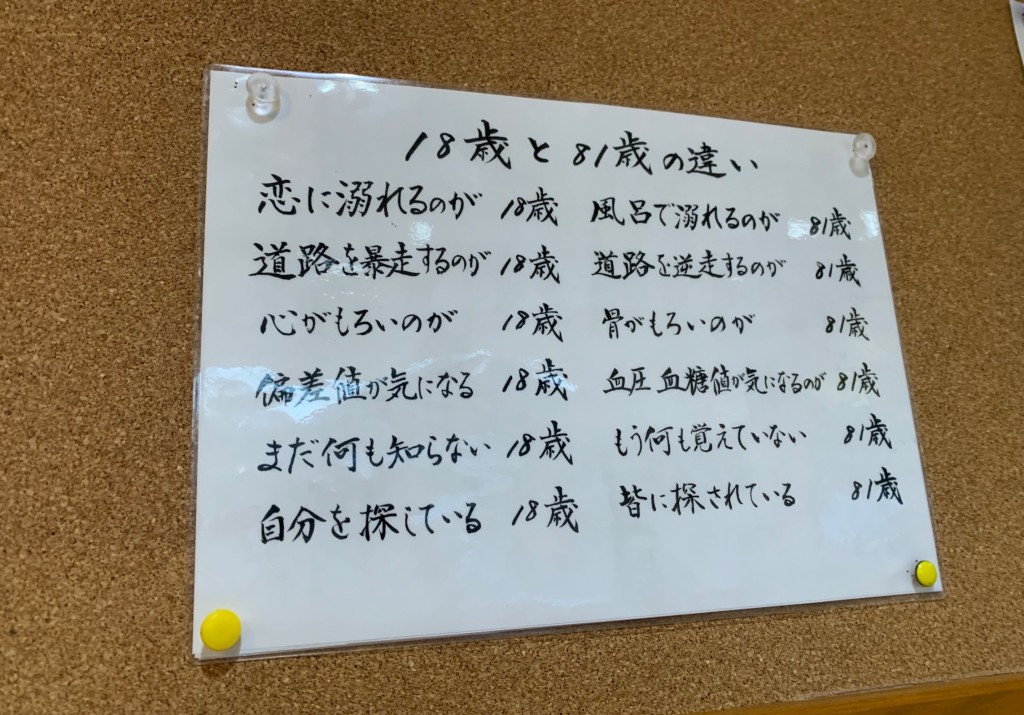 18歳と81歳の違い
恋に溺れるのが 18歳 風呂で溺れるのが 81歳
道路を暴走するのが 18歳 道路を逆走するのが 81歳
心がもろいのが 18歳 骨がもろいのが 81歳
偏差値が気になる 18歳 血圧 血糖値が気になるのが 81歳
まだ何も知らない 18歳 もう何も覚えていない 81歳
自分を探している 18歳 皆に探されている 81歳